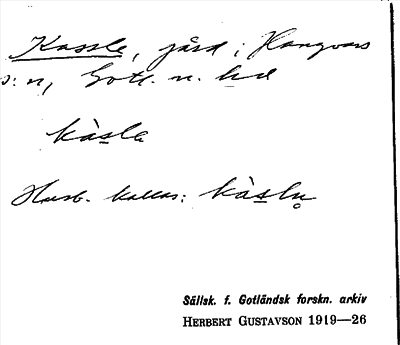 Kassle, gård i Hangvars
s:n, Gotl. n. hd
kàsle
Husb. kallas: kàslu̥
Sällsk. f. Gotländsk forskn. arkiv
HERBERT GUSTAVSON 1919—26